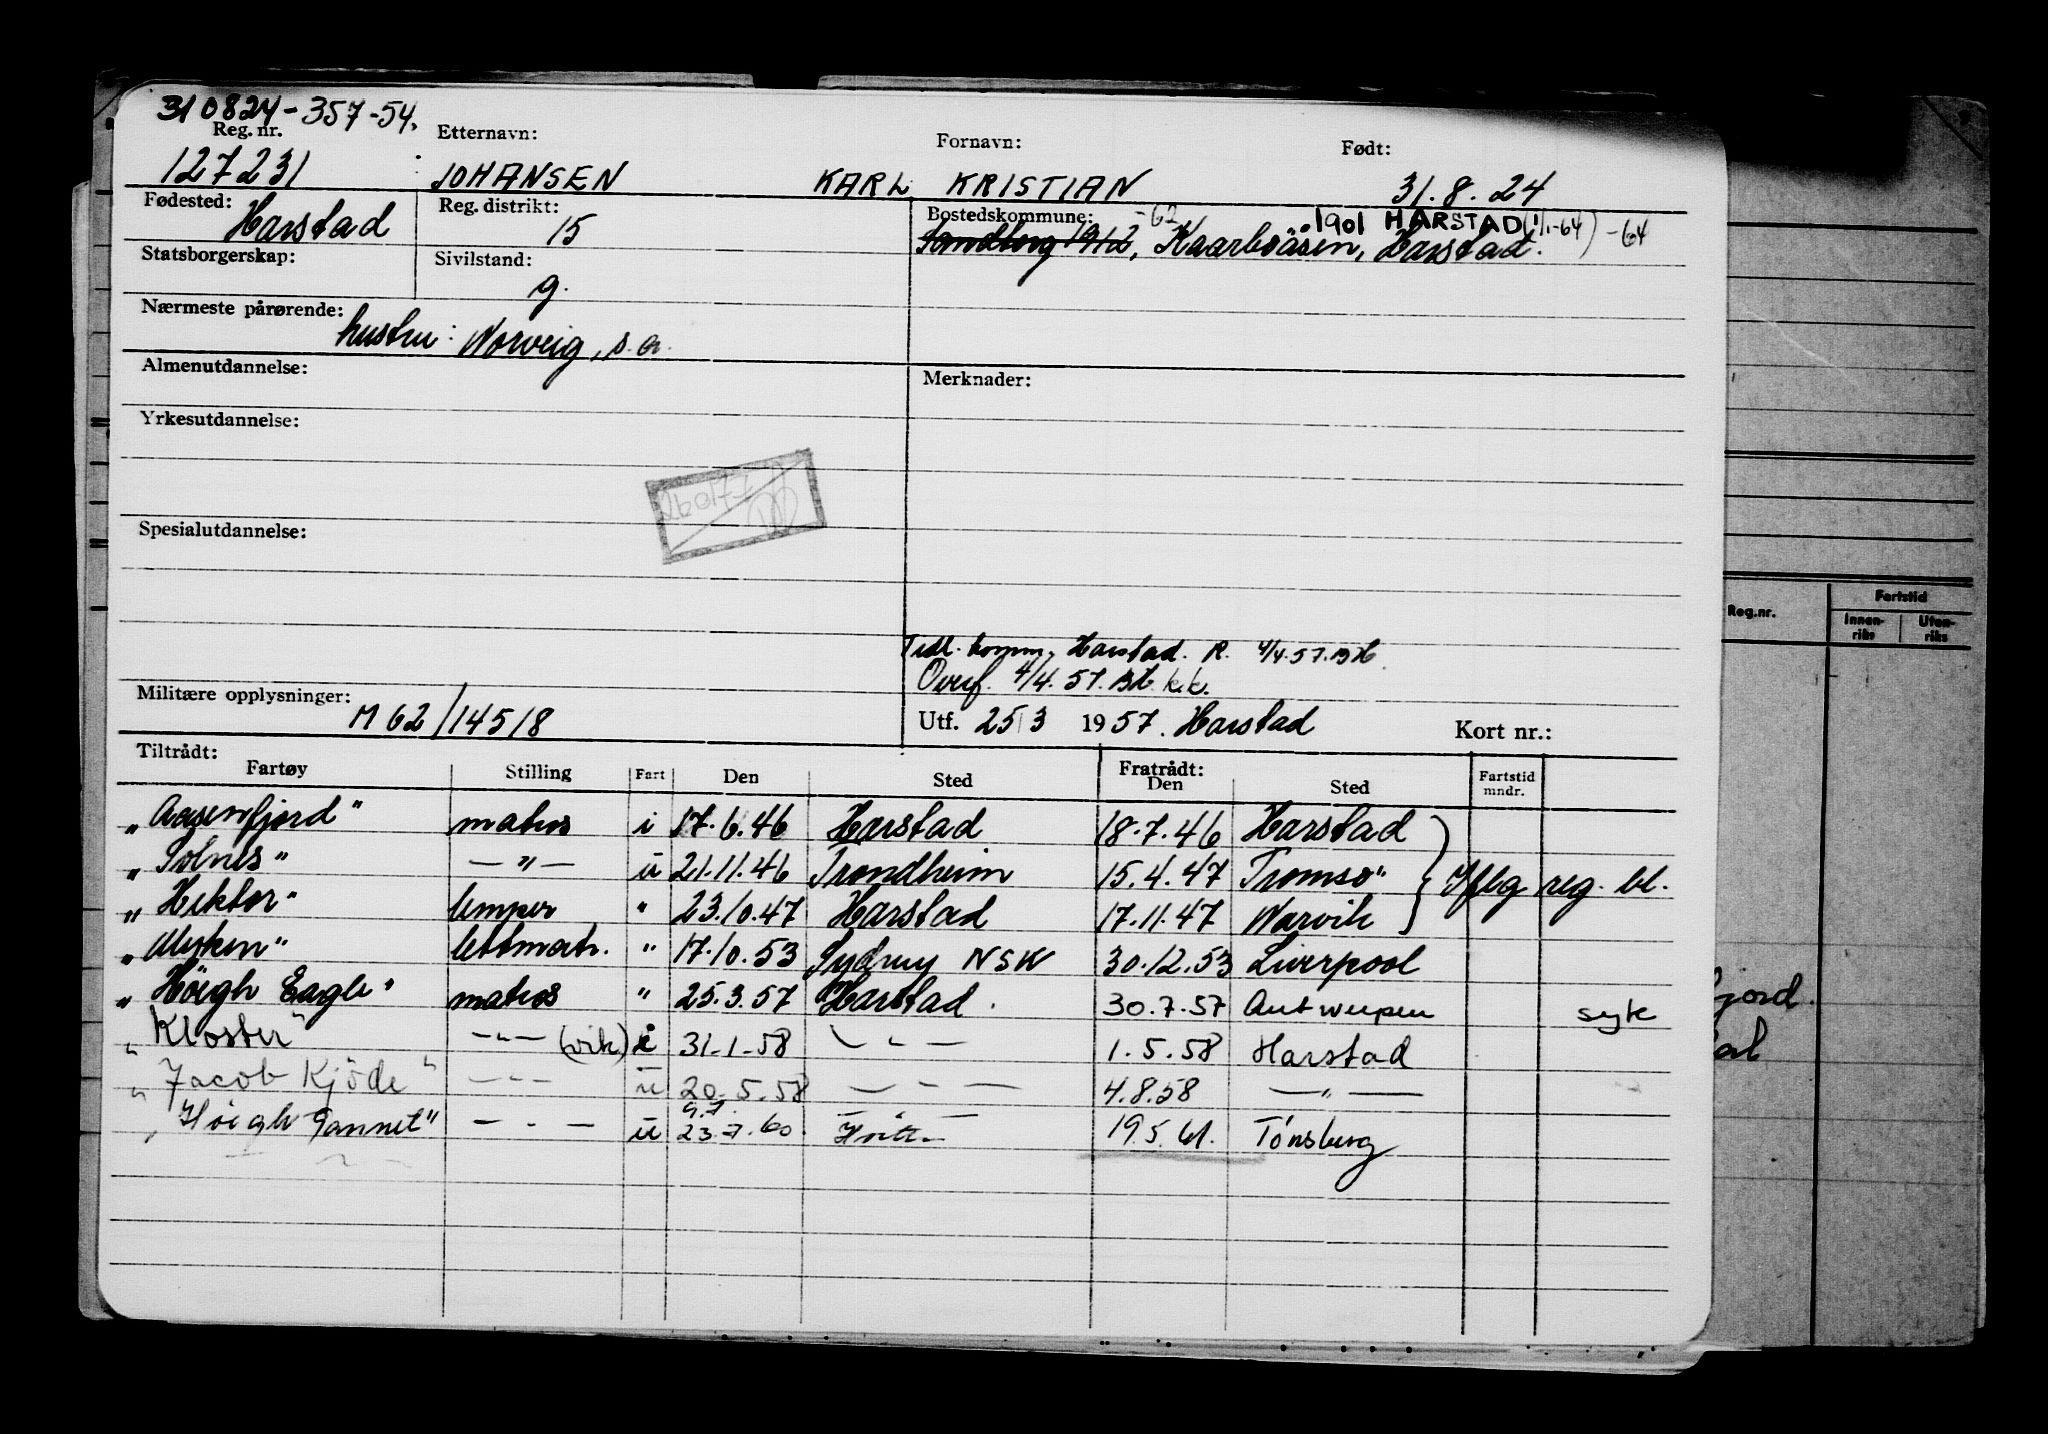 310824-357-54.
Reg. nr. Etternavn: Fornavn: Født:
127231 JOHANSEN KARL KRISTIAN 31.8.24
Fødested: Harstad Reg. distrikt: 15 Bostedskommune: -62 1901 HARSTAD (1/1-64) -64
Sandtorg 1912, Kaarbøåsen, Harstad.
Statsborgerskap: Sivilstand: g.
Nærmeste pårørende: hustru: Norveig, s.a.
Almenutdannelse: Merknader:
Yrkesutdannelse:
Spesialutdannelse:
Tidl. komm. Harstad. R. 4/4.57.
Overf. 4/4.57. k.k.
Militære opplysninger: M 62/14518 Utf. 25/3 1957. Harstad Kort nr.:
Tiltrådt: Fratrådt:
Fartøy Stilling Fart Den Sted Den Sted Fartstid mndr.
"Aasenfjord" matros i 17.6.46 Harstad 18.7.46 Harstad
"Solnes" —"— u 21.11.46 Trondheim 15.4.47 Tromsø } Iflg reg. bl.
"Hektor" lemper " 23.10.47 Harstad 17.11.47 Narvik
"Myken" lettmatr. " 17.10.53 Sydney NSW 30.12.53 Liverpool
"Höegh Eagle" matros " 25.3.57 Harstad. 30.7.57 Antwerpen syk
"Kloster" —"— (vik) i 31-1-58 —"— 1.5.58 Harstad
"Jacob Kjöde" —"— u 20.5.58 —"— 4.8.58 —"—
"Höigh Gannet" —"— u 9.7. 23.7.60. 19.5.61. Tönsberg
Reg.nr. Fartstid
Innen-riks Uten-riks
fjord.